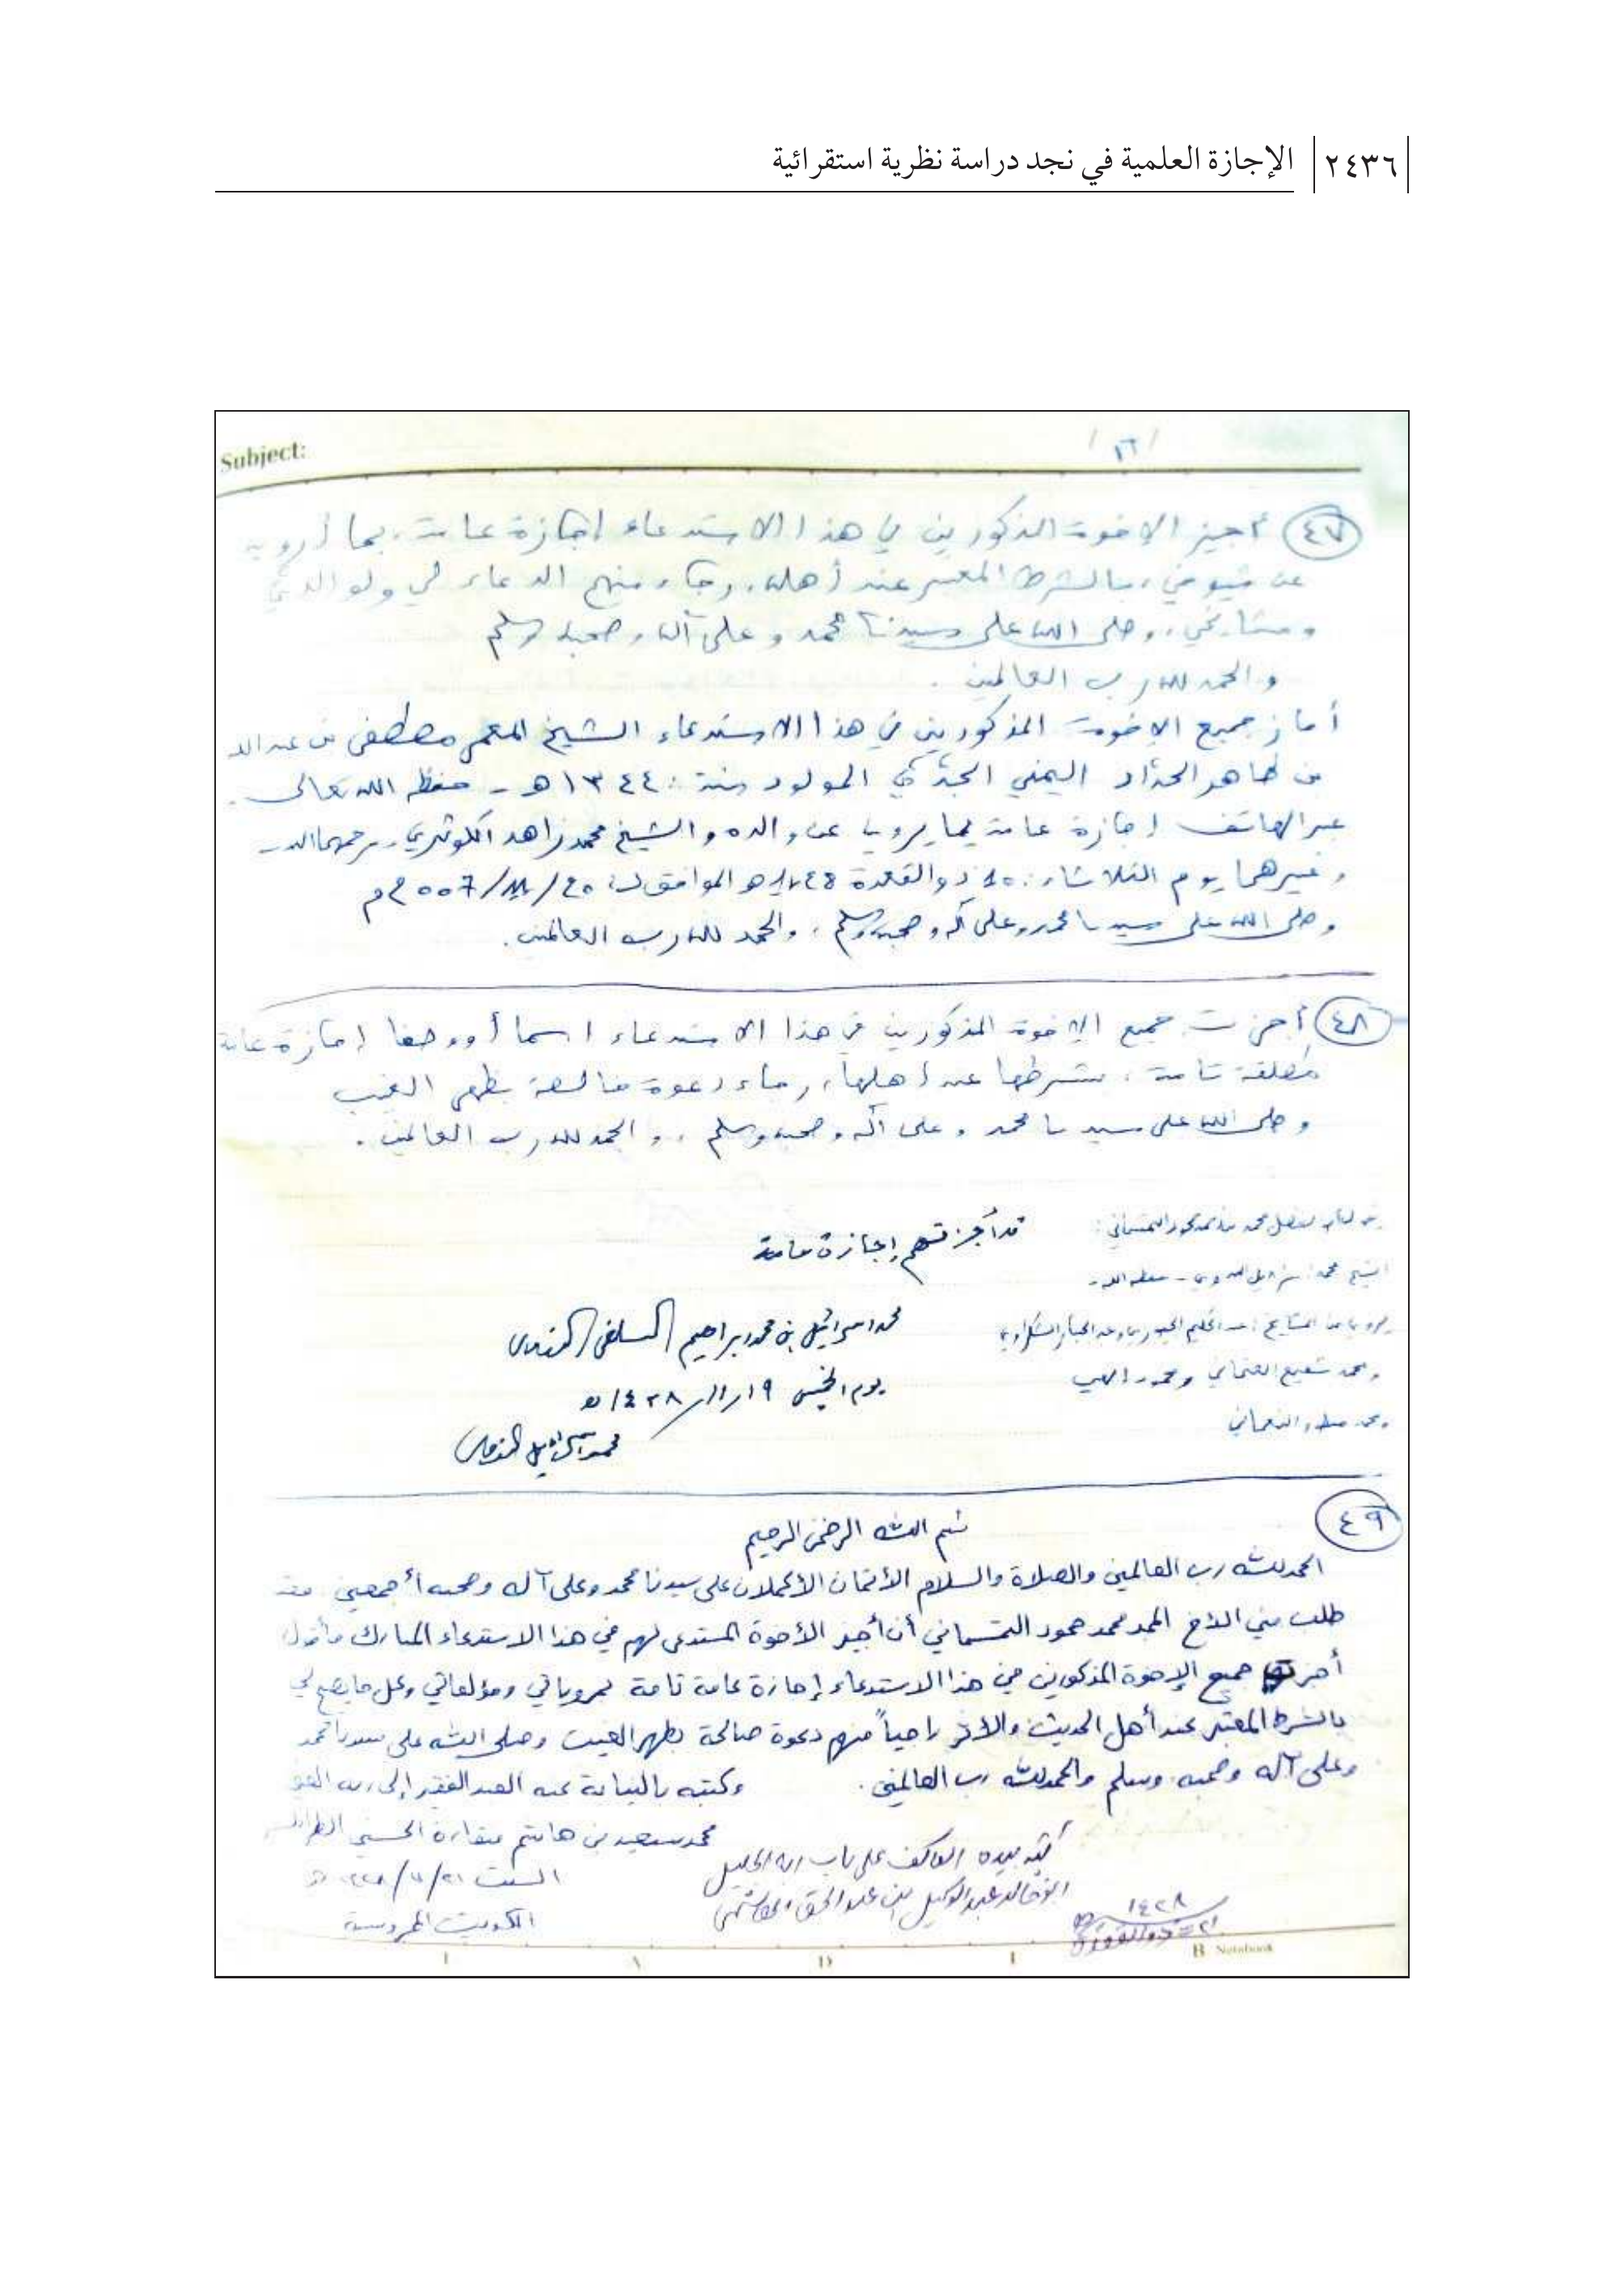 ٢٤٣٦ الإجازة العلمية في نجد دراسة نظرية استقرائية
Subject:
/ ١٦ /
٤٧ أجيز الإخوة المذكورين في هذا الاستدعاء إجازة عامة بما أرويه
عن شيوخي، بالشرط المعتبر عند أهله، رجاء منهم الدعاء لي ولوالدي
ومشايخي، وصلى الله على سيدنا محمد وعلى آله وصحبه وسلم
والحمد لله رب العالمين.
أجاز جميع الإخوة المذكورين في هذا الاستدعاء الشيخ المعمر مصطفى بن عبد الله
بن طاهر الحداد اليمني الجدي المولود سنة: ١٣٤٤هـ - حفظه الله تعالى.
عبر الهاتف إجازة عامة بما يرويه عن والده والشيخ محمد زاهد الكوثري - رحمهما الله -
وغيرهما يوم الثلاثاء: ذو القعدة هـ الموافق لـ: م
وصلى الله على سيدنا محمد وعلى آله وصحبه وسلم، والحمد لله رب العالمين.
٤٨ أجزت جميع الإخوة المذكورين في هذا الاستدعاء اسما أو وصفا إجازة عامة
مطلقة تامة، بشرطها عند أهلها، رجاء دعوة صالحة بظهر الغيب
وصلى الله على سيدنا محمد وعلى آله وصحبه وسلم، والحمد لله رب العالمين.
قد أجزتهم إجازة عامة
محمد إسرائيل بن محمد إبراهيم السلفي الندوي
يوم الخميس ١٩/١١/١٤٢٨هـ
محمد إسرائيل الندوي
الشيخ محمد إسرائيل الندوي - حفظه الله -
المشايخ: عبد الحكيم الجيوري وعبد الجبار الشكراوي
ومحمد
٤٩
بسم الله الرحمن الرحيم
الحمد لله رب العالمين والصلاة والسلام الأتمان الأكملان على سيدنا محمد وعلى آله وصحبه أجمعين فقد
طلب مني الأخ محمد حمود التمسماني أن أجيز الأخوة المستدعى لهم في هذا الاستدعاء المبارك فأقول
أجزت جميع الإخوة المذكورين في هذا الاستدعاء إجازة عامة تامة بمروياتي ومؤلفاتي وكل ما يصح لي
بالشرط المعتبر عند أهل الحديث والأثر راجياً منهم دعوة صالحة بظهر الغيب وصلى الله على سيدنا محمد
وعلى آله وصحبه وسلم والحمد لله رب العالمين.
وكتبه بالنيابة عنه العبد الفقير إلى ربه
محمد سعيد بن هاشم منقارة الحسني
السبت
الكويت المحروسة
كتبه بيده العاكف على باب ربه الجليل
أبو خالد عبد الوكيل ابن عبد الحق الهاشمي
١٤٢٨
٢١ = ذو القعدة
B Notebook